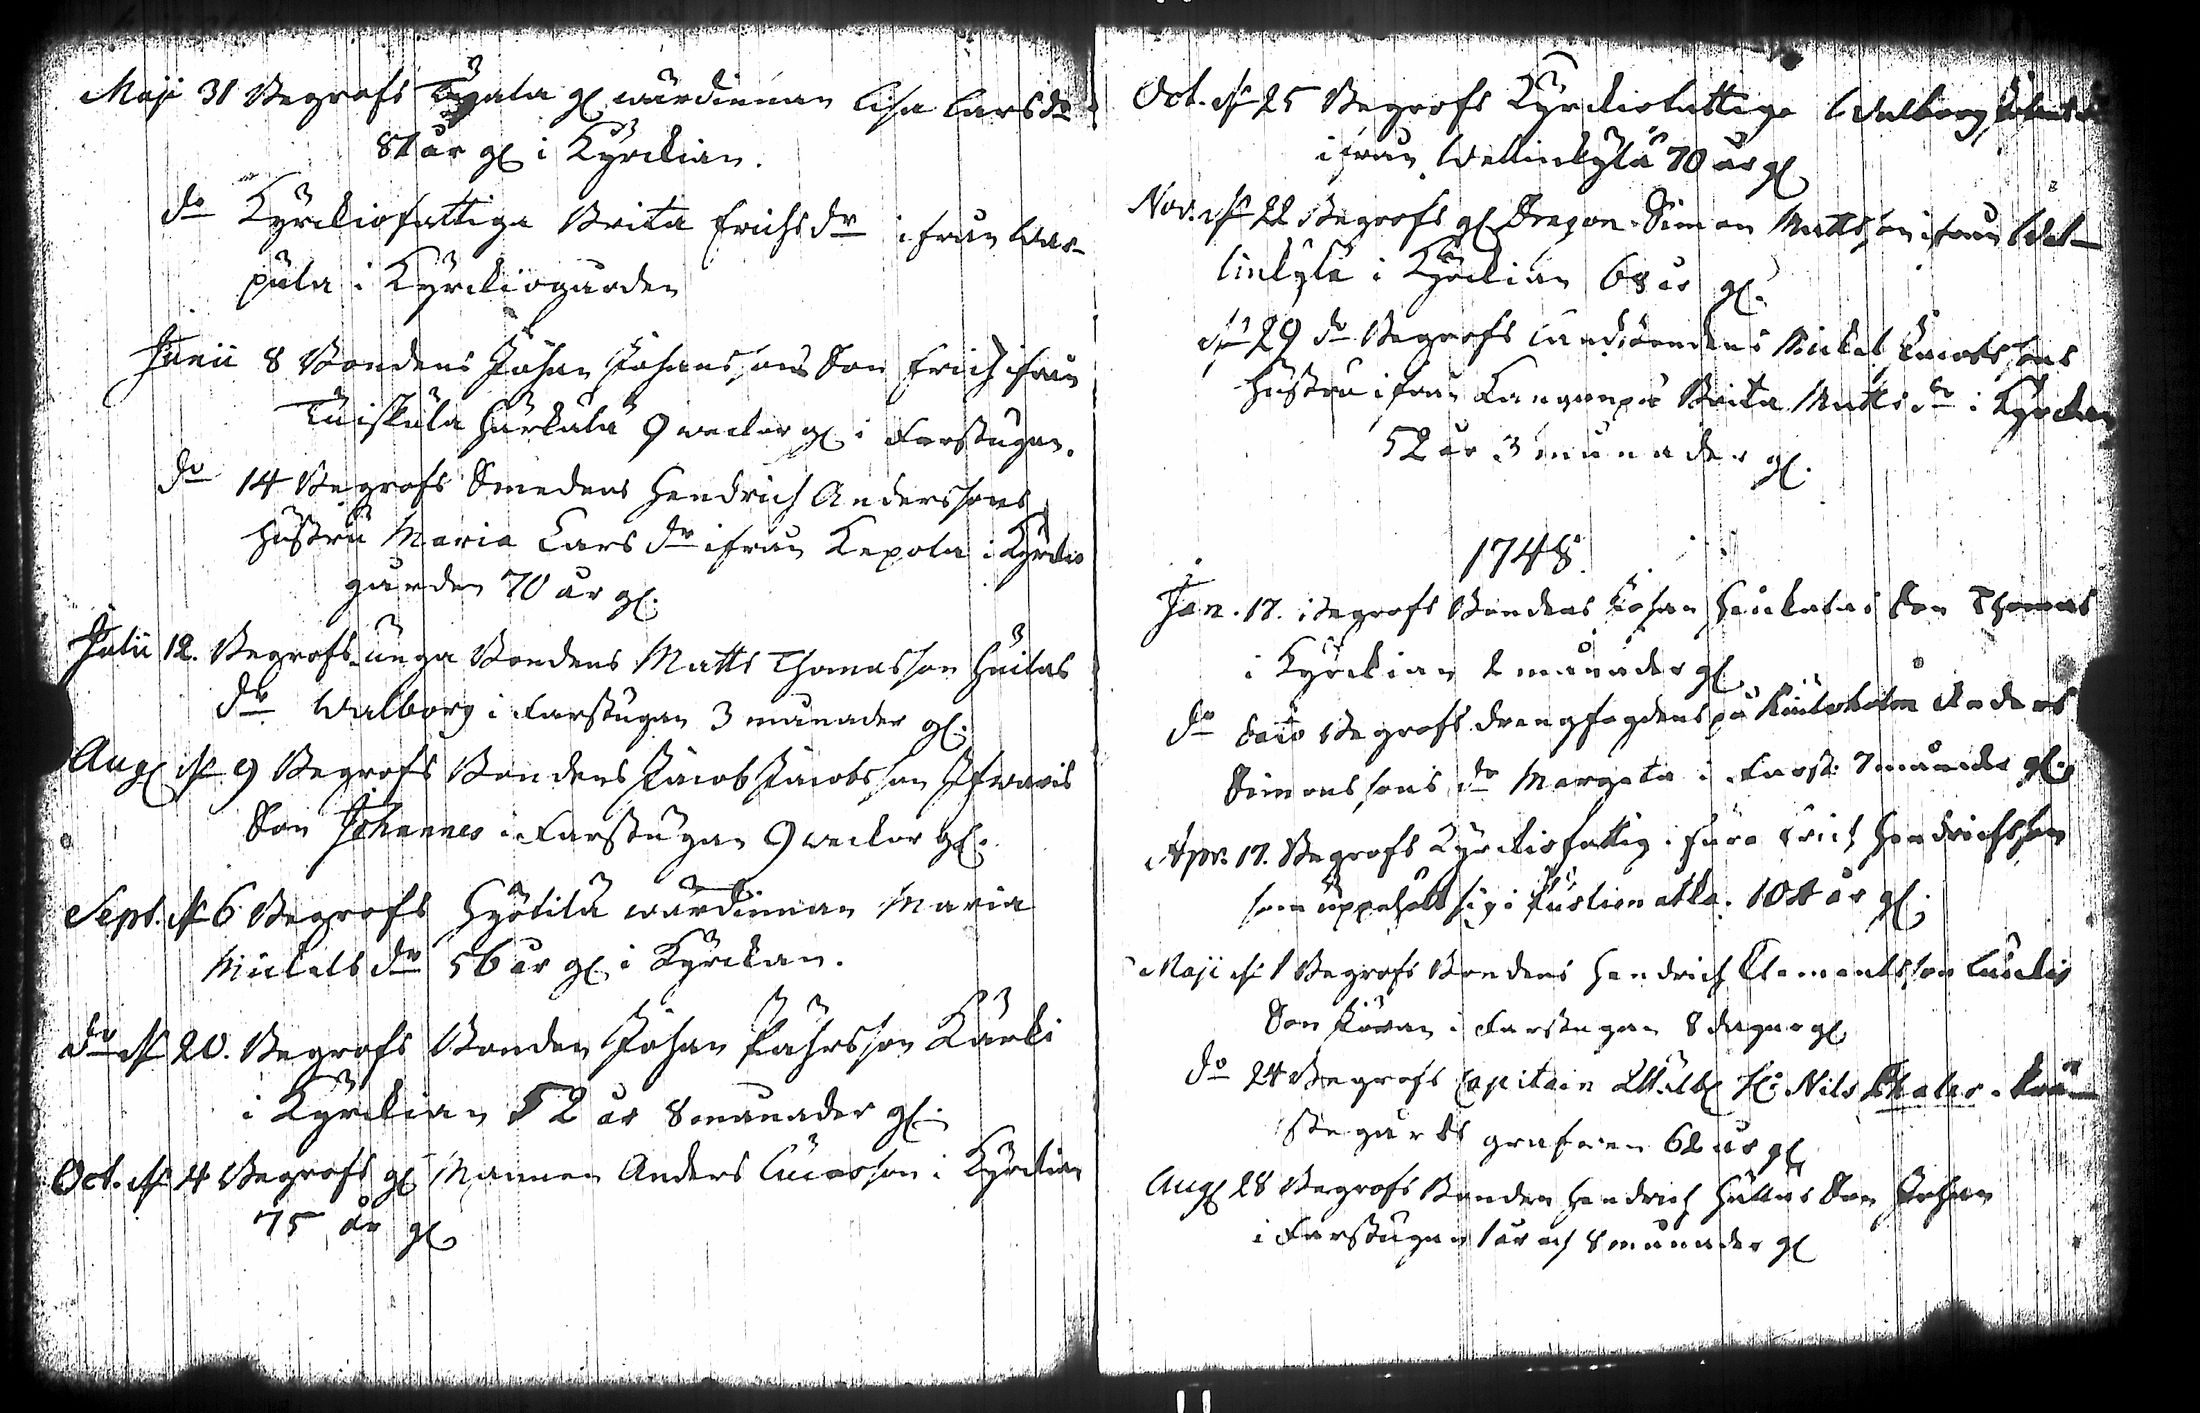 Maji 31 Begrofs Typala gl wärdinnan Lisa Larsdr
81 år gl i Kyrckian.
do Kyrckiofattiga Brita Erichsdr ifrån Was-
pula i Kyrckiogården
Junii 8 Bondens Johan Johanssons Son Erich ifrån
Tuiskula Härkälä 9 weckor gl i Farstugan.
do 14 Begrofs Smedens Hendrich Anderssons
hustru Maria Larsdr ifrån Kepola i Kyrckio
gården 70 år gl.
Julii 12. Begrofs unga Bondens Matts Thomasson Huilas
dr Walborg i Farstugan 3 månader gl.
Aug d 9 Begrofs Bondens Jacob Jacobsson
Son Johannes i Farstugan 9 weckor gl.
Sept. d 6 Begrofs Hyötilä wärdinnan Maria
Mickels dr 56 år gl i Kyrckan.
do d 20. Begrofs Bonden Johan Påhrsson Kärki
i Kyrckian 52 år 8 månader gl.
Oct. d 4 Begrofs gl Mannen Anders Lucasson i Kyrckian
75 år gl
Oct. d 25 Begrofs Kyrckiofattige Walborg
ifrån Wellinkylä 70 år gl
Nov. d 22 Begrofs gl Dragon Simon Mattsson ifrån Wel-
linkylä i Kyrckian 68 år gl.
d 29 do Begrofs Landbondens Mickel Jacobssons
hustru ifrån Kangonpä Brita Matts dr i Kyrckan
52 år 3 månader gl.
1748.
Jan. 17. Begrofs Bondens Johan Heickolas Son Thomas
i Kyrckian 2 månader gl
do dato Begrofs drengfogdens på Kiuloholm Anders
Simonssons dr Margeta i Farst: 7 månader gl.
Apr. 17. Begrofs Kyrckiofattig Erich Hendrichsson
som uppehölt sig i 104 år gl.
Maji d 1 Begrofs Bondens Hendrich Clementsson
Son Jöran i Farstugan 8 dagar gl
do 24 Begrofs Capitain H: Nils
stegårds grafwen 62 år gl
Aug 28 Begrofs Bonden Hendrich Son Johan
i Farstugan 1 år och 8 månader gl